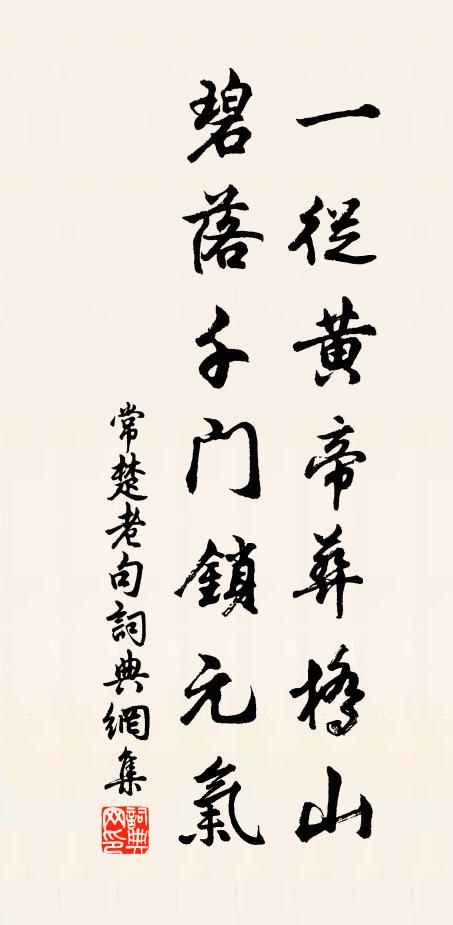 一從黃帝葬橋山
碧落千門鎖元氣
常楚老句詞典網集
詞典網印